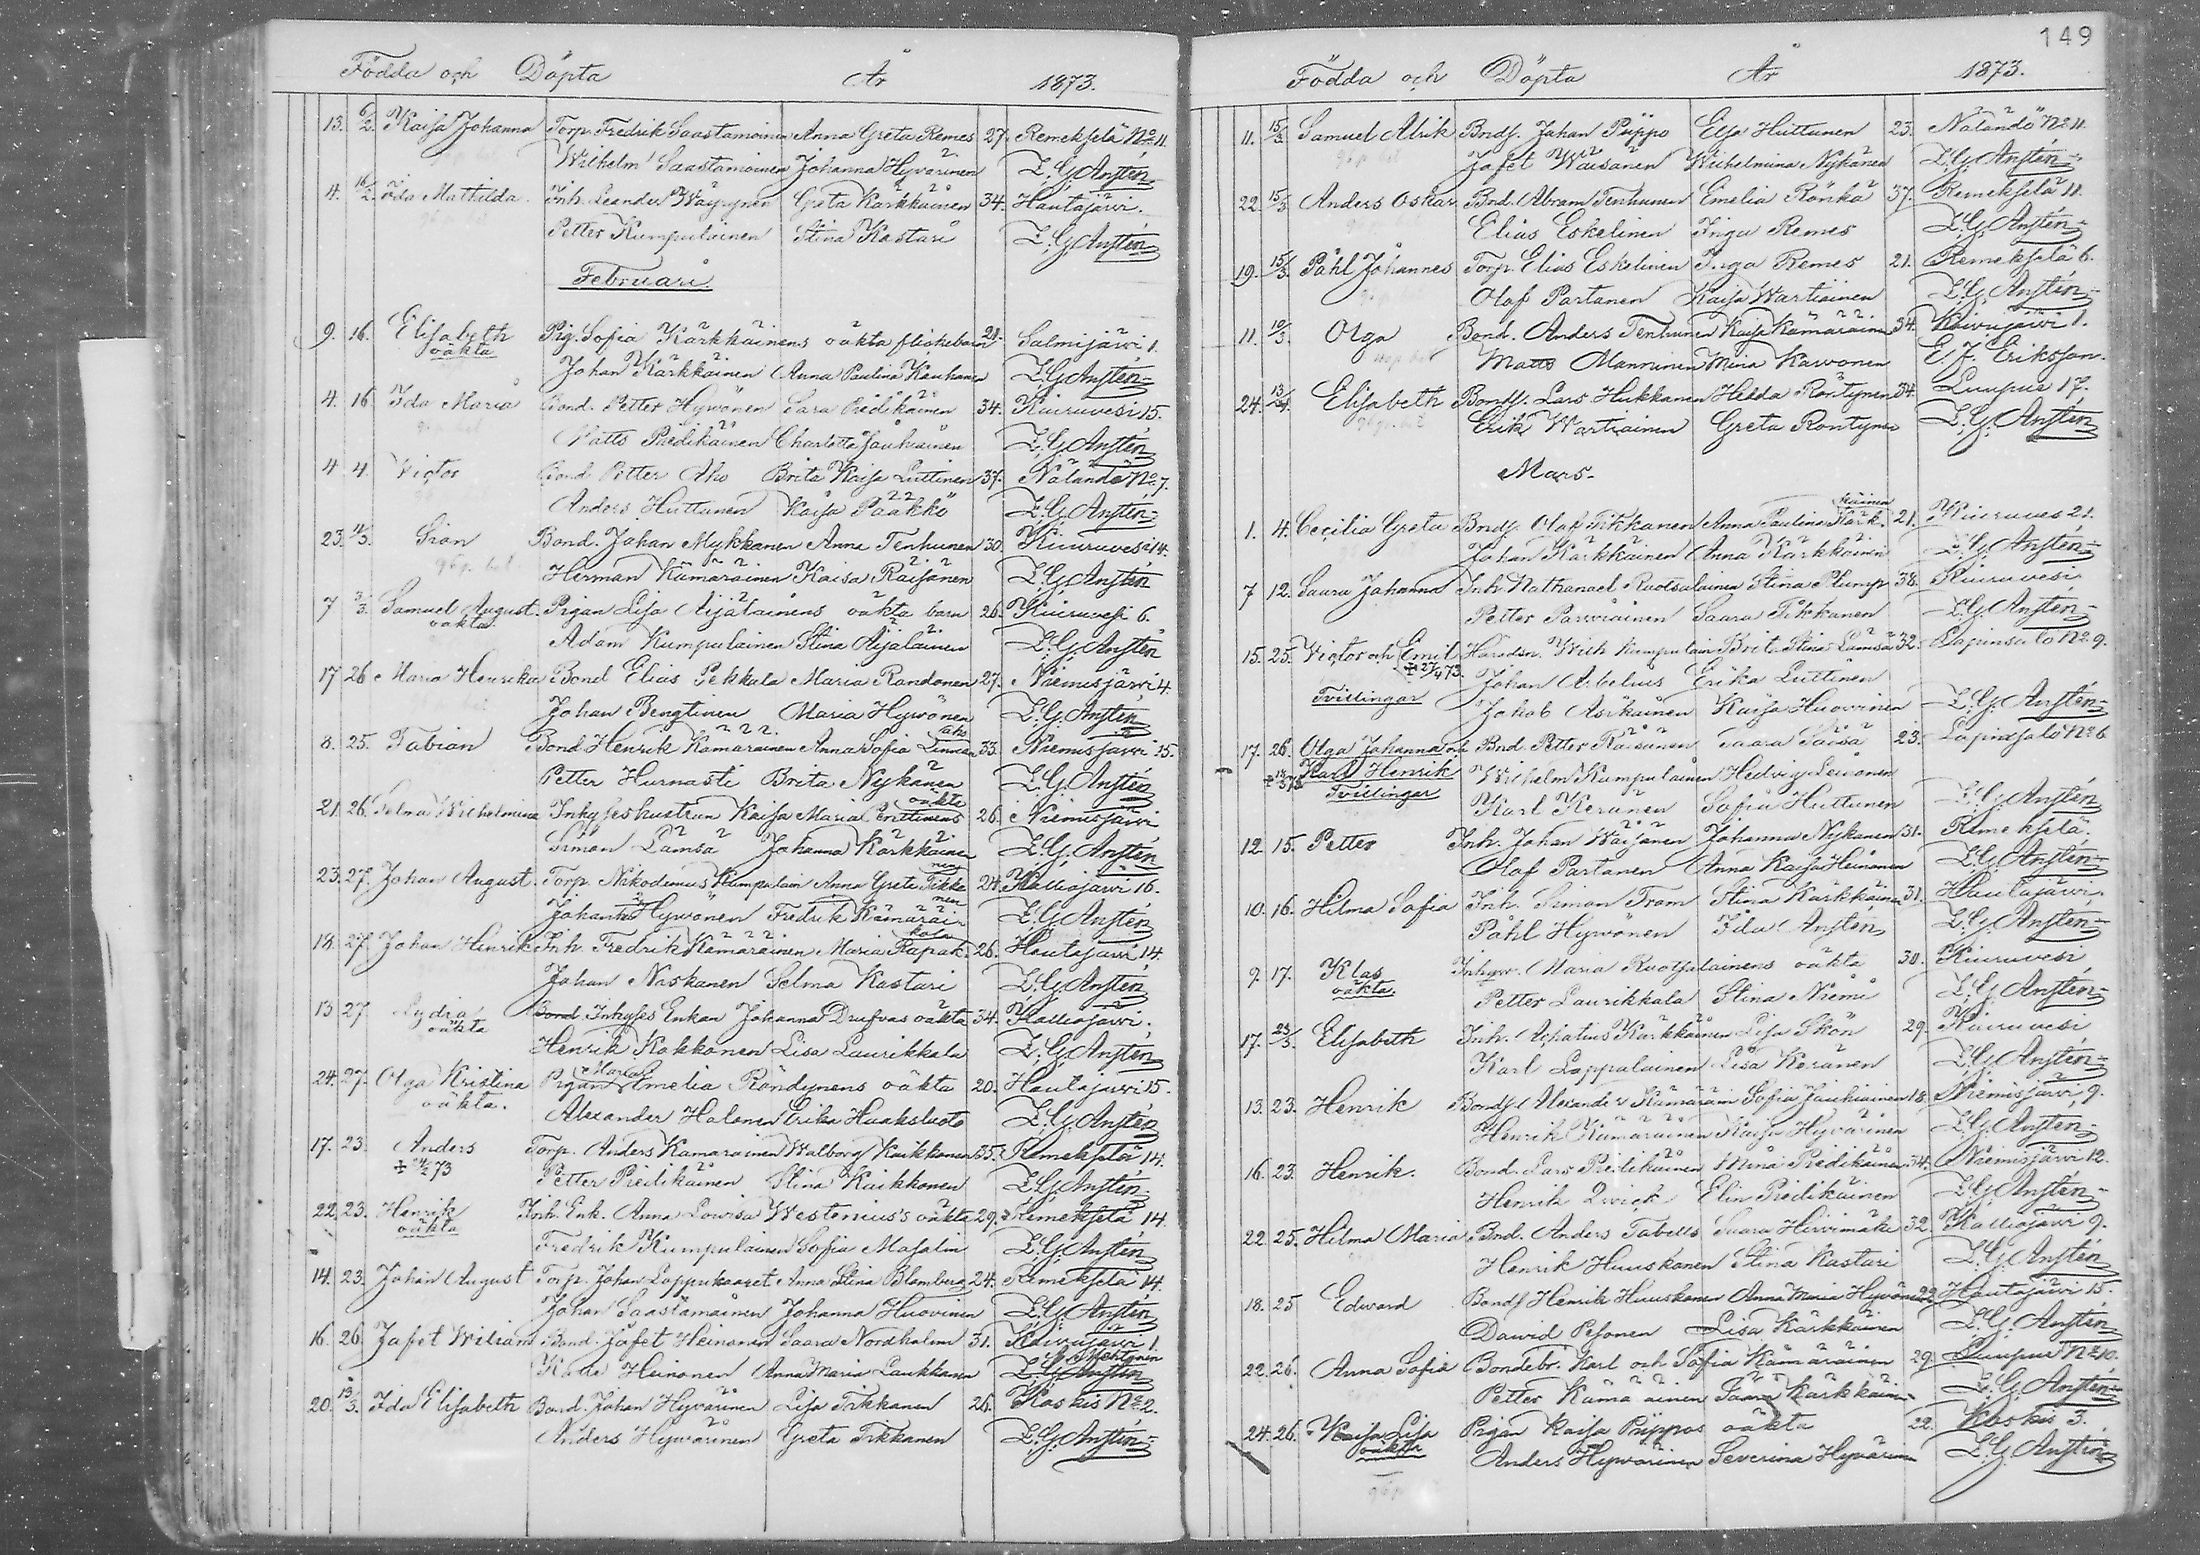 Födda och Döpta År 1873.
13. 6/2. Kaisa Johanna Torp. Fredrik Saastamoinen Anna Greta Remes 27. Remeksela No 11.
Wilhelm Saastamoinen Johanna Hyvärinen L. G. Anstén
4. 16/2. Ida Mathilda Inh. Leander Wäyrynen Greta Kärkkäinen 34. Hautajärvi.
Petter Kumpulainen Stina Kastari L. G. Anstén
Februari
9. 16. Elisabeth Pig. Sofia Kärkkäinens oäkta flickebarn 21. Salmijärvi 1.
oäkta
Johan Kärkkäinen Anna Paulina Kauhanen L. G. Anstén
4. 16. Ida Maria Bond. Petter Hyvönen Sara Piedikäinen 34. Kiuruvesi 15.
Matts Piedikäinen Charlotta Jauhiainen L. G. Anstén
4 4 Victor Bond Petter Aho Brita Kaisa Luttinen 37. Näländö No 7.
Anders Huttunen Kaisa Pääkkö L. G. Anstén
23. Bond. Johan Mykkänen Anna Tenhunen 30. Kiuruvesi 14.
Herman Kämäräinen Kaisa Räisänen L. G. Anstén
7 2/3. Samuel August. Pigan Lisa Äijäläinens oäkta barn 26. Kiuruvesi 6.
oäkta
Adam Kumpulainen Stina Äijäläinen L. G. Anstén
17 26 Maria Henrika Bond Elias Pekkala Maria Randonen 27. Niemisjärvi 4.
Johan Bengtinen Maria Hyvönen L. G. Anstén
8. 25. Fabian Bond Henrik Kämäräinen Anna Sofia Linna 33. Niemisjärvi 15.
Petter Hurnasti Brita Nykänen L. G. Anstén
21. 26. Selma Wilhelmina Inhyseshustrun Kaisa Maria Penttinens oäkta 26. Niemisjärvi
Simon Lämsä Johanna Kärkkäinen L. G. Anstén
23. 27. Johan August. Torp. Nikodemus Kumpulain Anna Greta Tikkanen 24. Kalliojärvi 16.
Hyvönen Fredrik Kämäräinen L. G. Anstén
18. 27. Johan Henrik Inh. Fredrik Kämäräinen Maria Rapakkola 26. Hautajärvi 14.
Johan Niskanen Selma Kastari L. G. Anstén
13 27 Lydia Inhyses Enkan Johanna Drufvas oäkta 34. Kalliojärvi.
oäkta
Henrik Kokkonen Lisa Laurikkala L. G. Anstén
24. 27. Olga Kristina Pigan Maria Amelia Röndynens oäkta 20. Hautajärvi 15.
oäkta.
Alexander Halonen Erika Haaksluoto L. G. Anstén
17. 23. Anders Torp. Anders Kämäräinen Walborg Kaikkonen 35. Remekselä 14.
Petter Piedikäinen Stina Kaikkonen L. G. Anstén
22. 23. Henrik Inh. Enk. Anna Lowisa Westenius's oäkta 29. Remekselä 14.
oäkta
Fredrik Kumpulainen Sofia Masalin L. G. Anstén
14. 23. Johan August Torp. Johan Lappukaaret Anna Stina Blomberg 24. Remekselä 14.
Johan Saastamoinen Johanna Huovinen L. G. Anstén
16. 26. Jafet Wiliam Bond. Jafet Heinonen Saara Nordholm 31. Koivujärvi 1.
Kalle Heinonen Anna Maria Laukkanen L. G. Anstén
20. 13/3. Ida Elisabeth Bond. Johan Hyvärinen Lisa Tikkanen 26. Koskis No 2.
Anders Hyvärinen Greta Tikkanen L. G. Anstén
149
Födda och Döpta År 1873.
11. 15/3 Samuel Alrik Bnds. Johan Püppo Elsa Huttunen 23. Näländö No 11.
Jafet Waisänen Wilhelmina Nykänen L. G. Anstén
22. 15/3. Anders Oskar Bnd. Abram Tenhunen Emelia Rönkä 37. Remekselä 11.
Elias Eskelinen Inga Remes L. G. Anstén
19. 15/3 Påhl Johannes Torp. Elias Eskelinen Inga Remes 21. Remekselä 6.
Olaf Partanen Kaisa Wartiainen L. G. Anstén
11. 10/3. Olga Bond. Anders Tenhunen Kaisa Kämäräinen 34. Koivujärvi 1.
Matts Manninen Mina Kärvonen E. J. Eriksson.
24. Elisabeth Bonds. Lars Hukkanen Hedda Röntynen 34. Luupus 17.
Erik Wartiainen Greta Röntynen L. G. Anstén
Mars.
1. 4. Cecilia Greta Bnds. Olaf Tikkanen Anna Paulina Kärkkäinen 21. Kiuruves 21.
Johan Kärkkäinen Anna Kärkkäinen L. G. Anstén
7 12. Saara Johanna Inh. Nathanael Ruotsalainen Stina Plump 38. Kiuruvesi
Petter Parviainen Saara Tikkanen L. G. Anstén
15. 25. Victor och Emil Wilh Kumpulain Brita Stina Lämsä 32. Lapinsalo No 9.
+ 27/4 73.
Johan Abelius Erika Luttinen
Tvillingar
Jakob Asikainen Kaisa Huovinen L. G. Anstén
17. 26. Olga Johanna och Bnd. Petter Räisänen Saara Säisä 23. Lapinsalo No 6
Karl Henrik Wilhelm Kumpulainen Hedvig Leivonen
Tvillingar
Karl Keränen Sofia Huttunen L. G. Anstén
12. 15. Petter Inh. Johan Wäisänen Johanna Nykänen 31. Remekselä.
Olaf Partanen Anna Kaisa Heinonen L. G. Anstén
10. 16. Hilma Sofia Inh. Simon Tram Stina Kärkkäinen 31. Hautajärvi.
Påhl Hyvönen Ida Anstén L. G. Anstén
9. 17. Klas Inhysr. Maria Ruotsalainens oäkta 30. Kiuruvesi
oäkta.
Petter Laurikkala Stina Niemi L. G. Anstén
17. 23/3. Elisabeth Inh. Achatius Kärkkäinen Lisa Skön 29. Kiuruvesi
Karl Lappalainen Lisa Keränen L. G. Anstén
13. 23. Henrik Bonds. Alexander Kämäräin Sofia Jauhiainen 18. Niemisjärvi 9.
Henrik Kämäräinen Kaisa Hyvärinen L. G. Anstén
16. 23. Henrik. Bond. Lars Piedikäinen Mina Piedikäinen 34. Niemisjärvi 12.
Henrik Qvick Elin Piedikäinen L. G. Anstén
22. 25. Hilma Maria Bnd. Anders Tabells Saara Hirvimäki 32. Kalliojärvi 9.
Henrik Huuskonen Stina Kastari L. G. Anstén
18. 25 Edward Bonds Henrik Huuskonen Anna Maria Hyvönen 22. Hautajärvi 15.
Dawid Pesonen Lisa Kärkkäinen L. G. Anstén
22. 26. Anna Sofia Bondebr. Karl och Sofia Kämäräinen 29. Luupus No 10.
Petter Kämäräinen Saara Kärkkäin L. G. Anstén
24. 26. Kaisa Lisa Pigan Kaisa Püppos oäkta 22. Koskis 3.
oäkta
Anders Hyvärinen Severina Hyvärinen L. G. Anstén